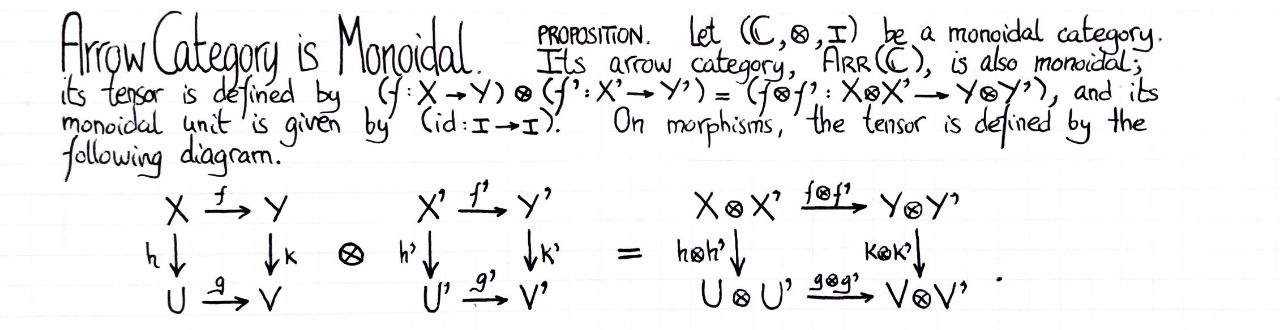 Arrow Category is Monoidal. PROPOSITION. Let (ℂ, ⊗, I) be a monoidal category.
Its arrow category, ARR(ℂ), is also monoidal;
its tensor is defined by (f: X → Y) ⊗ (f': X' → Y') = (f⊗f' : X⊗X' → Y⊗Y'), and its
monoidal unit is given by (id: I → I). On morphisms, the tensor is defined by the
following diagram.
X f→ Y X' f'→ Y' X ⊗ X' f⊗f'→ Y⊗Y'
h↓ ↓k ⊗ h'↓ ↓k' = h⊗h'↓ k⊗k'↓
U g→ V U' g'→ V' U ⊗ U' g⊗g'→ V⊗V' .